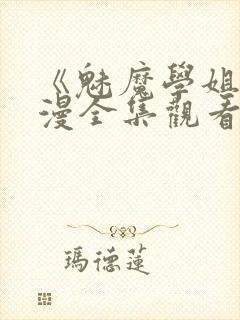 《魅魔學姐
漫全集觀看
瑪德蓮